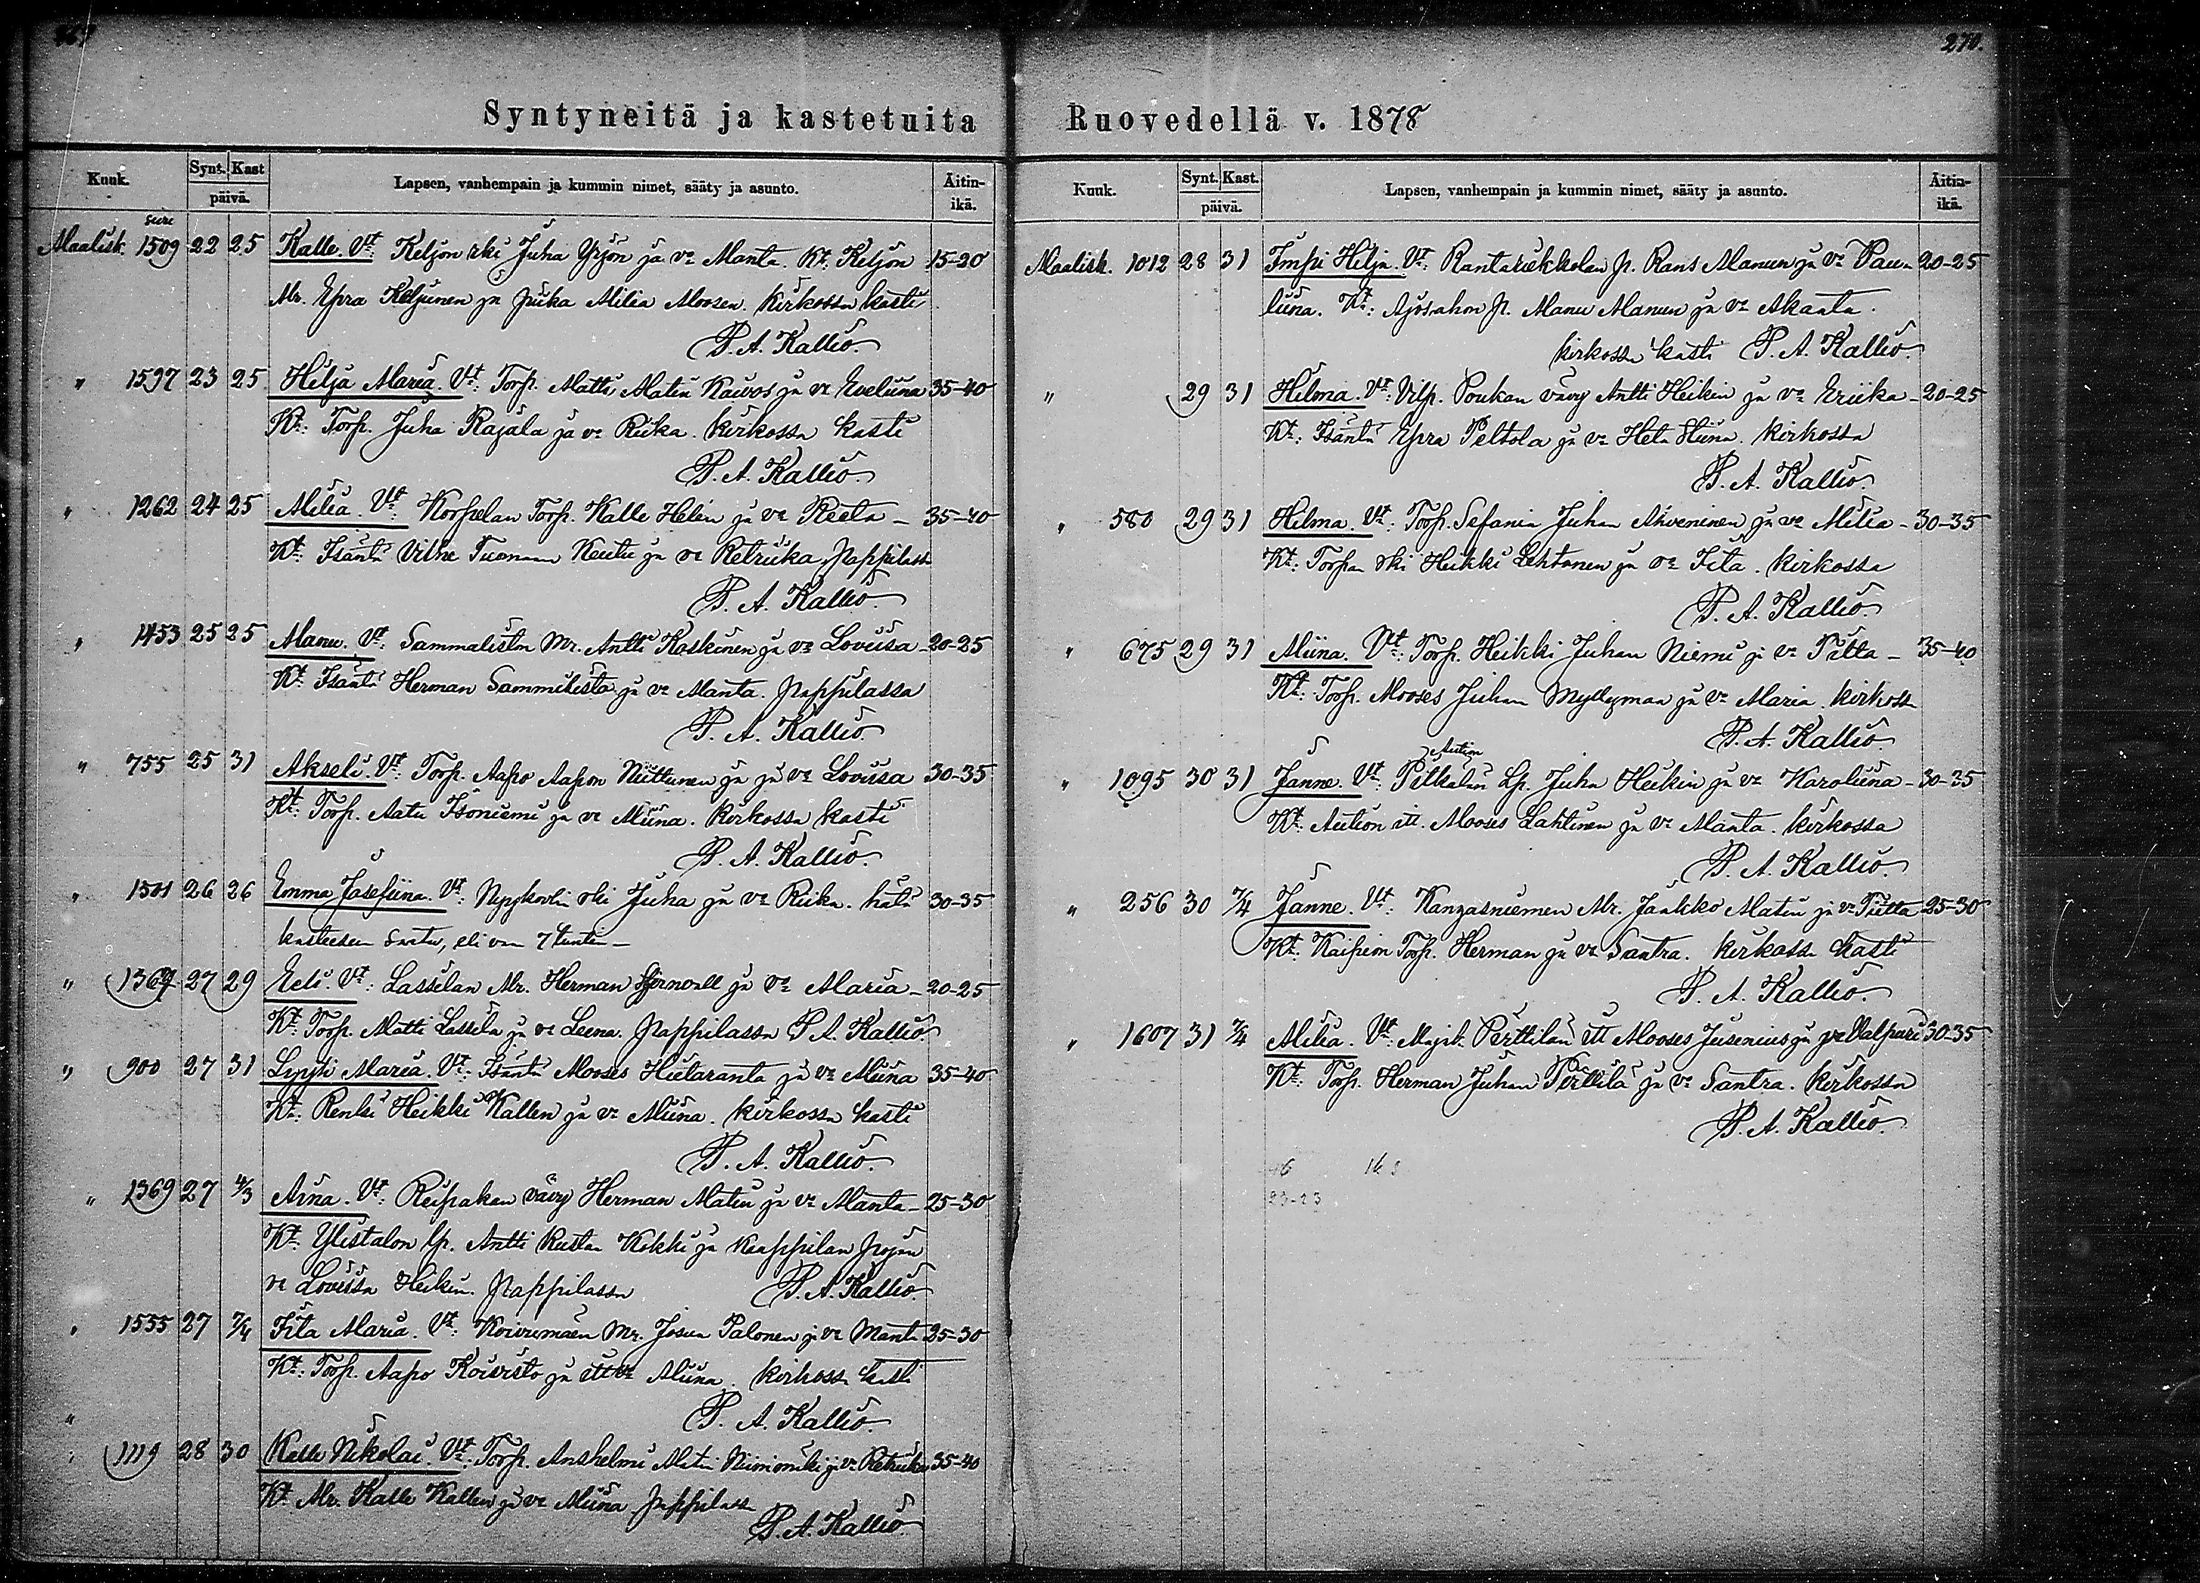 270.
Syntyneitä ja kastetuita
Kuuk. Synt. Kast päivä. Lapsen, vanhempain ja kummin nimet, sääty ja asunto. Äitin-ikä.
Maalisk. 1509 22 25 Kalle. Vt: Keljon rki Juha Yrjön ja vo Manta. Kt. Keljon 15-20
Mr. Epra Keljunen ja piika Milia Moosen. Kirkossa kasti
P. A. Kallio.
" 1597 23 25 Hilja Maria. Vt: Torp. Matti Matin Kaivos ja vo Eveliina 35-40
Kt: Torp. Juha Rajala ja vo Riika. Kirkossa kasti
P. A. Kallio.
" 1262 24 25 Milia. Vt: Korpelan Torp. Kalle Helin ja vo Reeta - 35-40
Kt: Isäntä Vilhe Tuomaan Keutu ja vo Retriika, Pappilassa
P. A. Kallio.
" 1453 25 25 Manu. Vt: Sammaliston Mr. Antti Koskinen ja vo Loviisa - 20-25
Kt: Isäntä Herman Sammilisto ja vo Manta. Pappilassa
P. A. Kallio.
" 755 25 31 Akseli. Vt: Torp. Aapo Aapon Niittunen ja vo Loviisa 30-35
Kt: Torp. Aatu Isoniemi ja vo Miina. Kirkossa kasti
P. A. Kallio.
" 1301 26 26 Emma Josefiina. Vt: rki Juha ja vo Riika. hätä 30-35
kasteesen eli vaan 7 tuntia -
" 1364 27 29 Eeli. Vt: Lassilan Mr. Herman ja vo Maria - 20-25
Kt: Torp. Matti Lassila ja vo Leena. Pappilassa P. A. Kallio.
" 900 27 31 Lyyti Maria. Vt: Isäntä Mooses Hietaranta ja vo Miina 35-40
Kt: Renki Heikki Kallen ja vo Miina. Kirkossa kasti
P. A. Kallio.
" 1369 27 Aina. Vt: Reipakan vävy Herman Matin ja vo Manta - 25-30
Kt: Ylistalon lp. Antti Kustaa Kokki ja Kaappilan pojan
vo Loviisa Heikin. Pappilassa P. A. Kallio.
" 1555 27 7/4 Iita Maria. Vt: Koivumäen Mr. Josua Palonen ja vo Manta 25-30
Kt: Torp. Aapo Koivisto ja vo Miina. Kirkossa kasti
P. A. Kallio.
" 1119 28 30 Kalle Nikolai. Vt: Torp. Anshelmi Matin ja vo Retriika 35-40
Kt: Mr. Kalle Kallen ja vo Miina Pappilassa
P. A. Kallio.
Ruovedellä v. 1878
Kuuk. Synt. Kast. päivä. Lapsen, vanhempain ja kummin nimet, sääty ja asunto. Äitin-ikä.
Maalisk. 1012 28 31 Impi Hilja. Vt: p. Rans Manun ja vo Pau- 20-25
liina. Kt: Ajosahon p. Manu Manun ja vo Akanta.
kirkossa kasti P. A. Kallio.
" 29 31 Hilma. Vt: Poukan vävy Antti Heikin ja vo Eriika - 20-25
Kt: Isäntä Epra Peltola ja vo Heta Stiina. Kirkossa
P. A. Kallio.
" 580 29 31 Hilma. Vt: Torp. Sefania Juhan Ahveninen ja vo Milia - 30-35
Kt: Torpan rki Heikki Lehtonen ja vo Iita. Kirkossa
P. A. Kallio
" 675 29 31 Miina. Vt: Torp. Heikki Juhan Niemi ja vo Riitta - 35-40
Kt: Torp. Mooses Juhan Myllymaa ja vo Maria. kirkossa
P. A. Kallio.
Aution
" 1095 30 31 Janne. Vt: Lp. Juha Heikin ja vo Karoliina - 30-35
Kt: Aution itt. Mooses Lahtinen ja vo Manta. Kirkossa
P. A. Kallio.
" 256 30 7/4 Janne. Vt: Kangasniemen Mr. Jaakko Matin ja vo Riitta 25-30
Kt: Torp. Herman ja vo Santra. kirkossa kasti
P. A. Kallio.
" 1607 31 7/4 Milia. Vt: Perttilan itt Mooses Jusenius ja vo Valpuri 30-35
Kt: Torp. Herman Juhan Perttilä ja vo Santra. Kirkossa
P. A. Kallio.